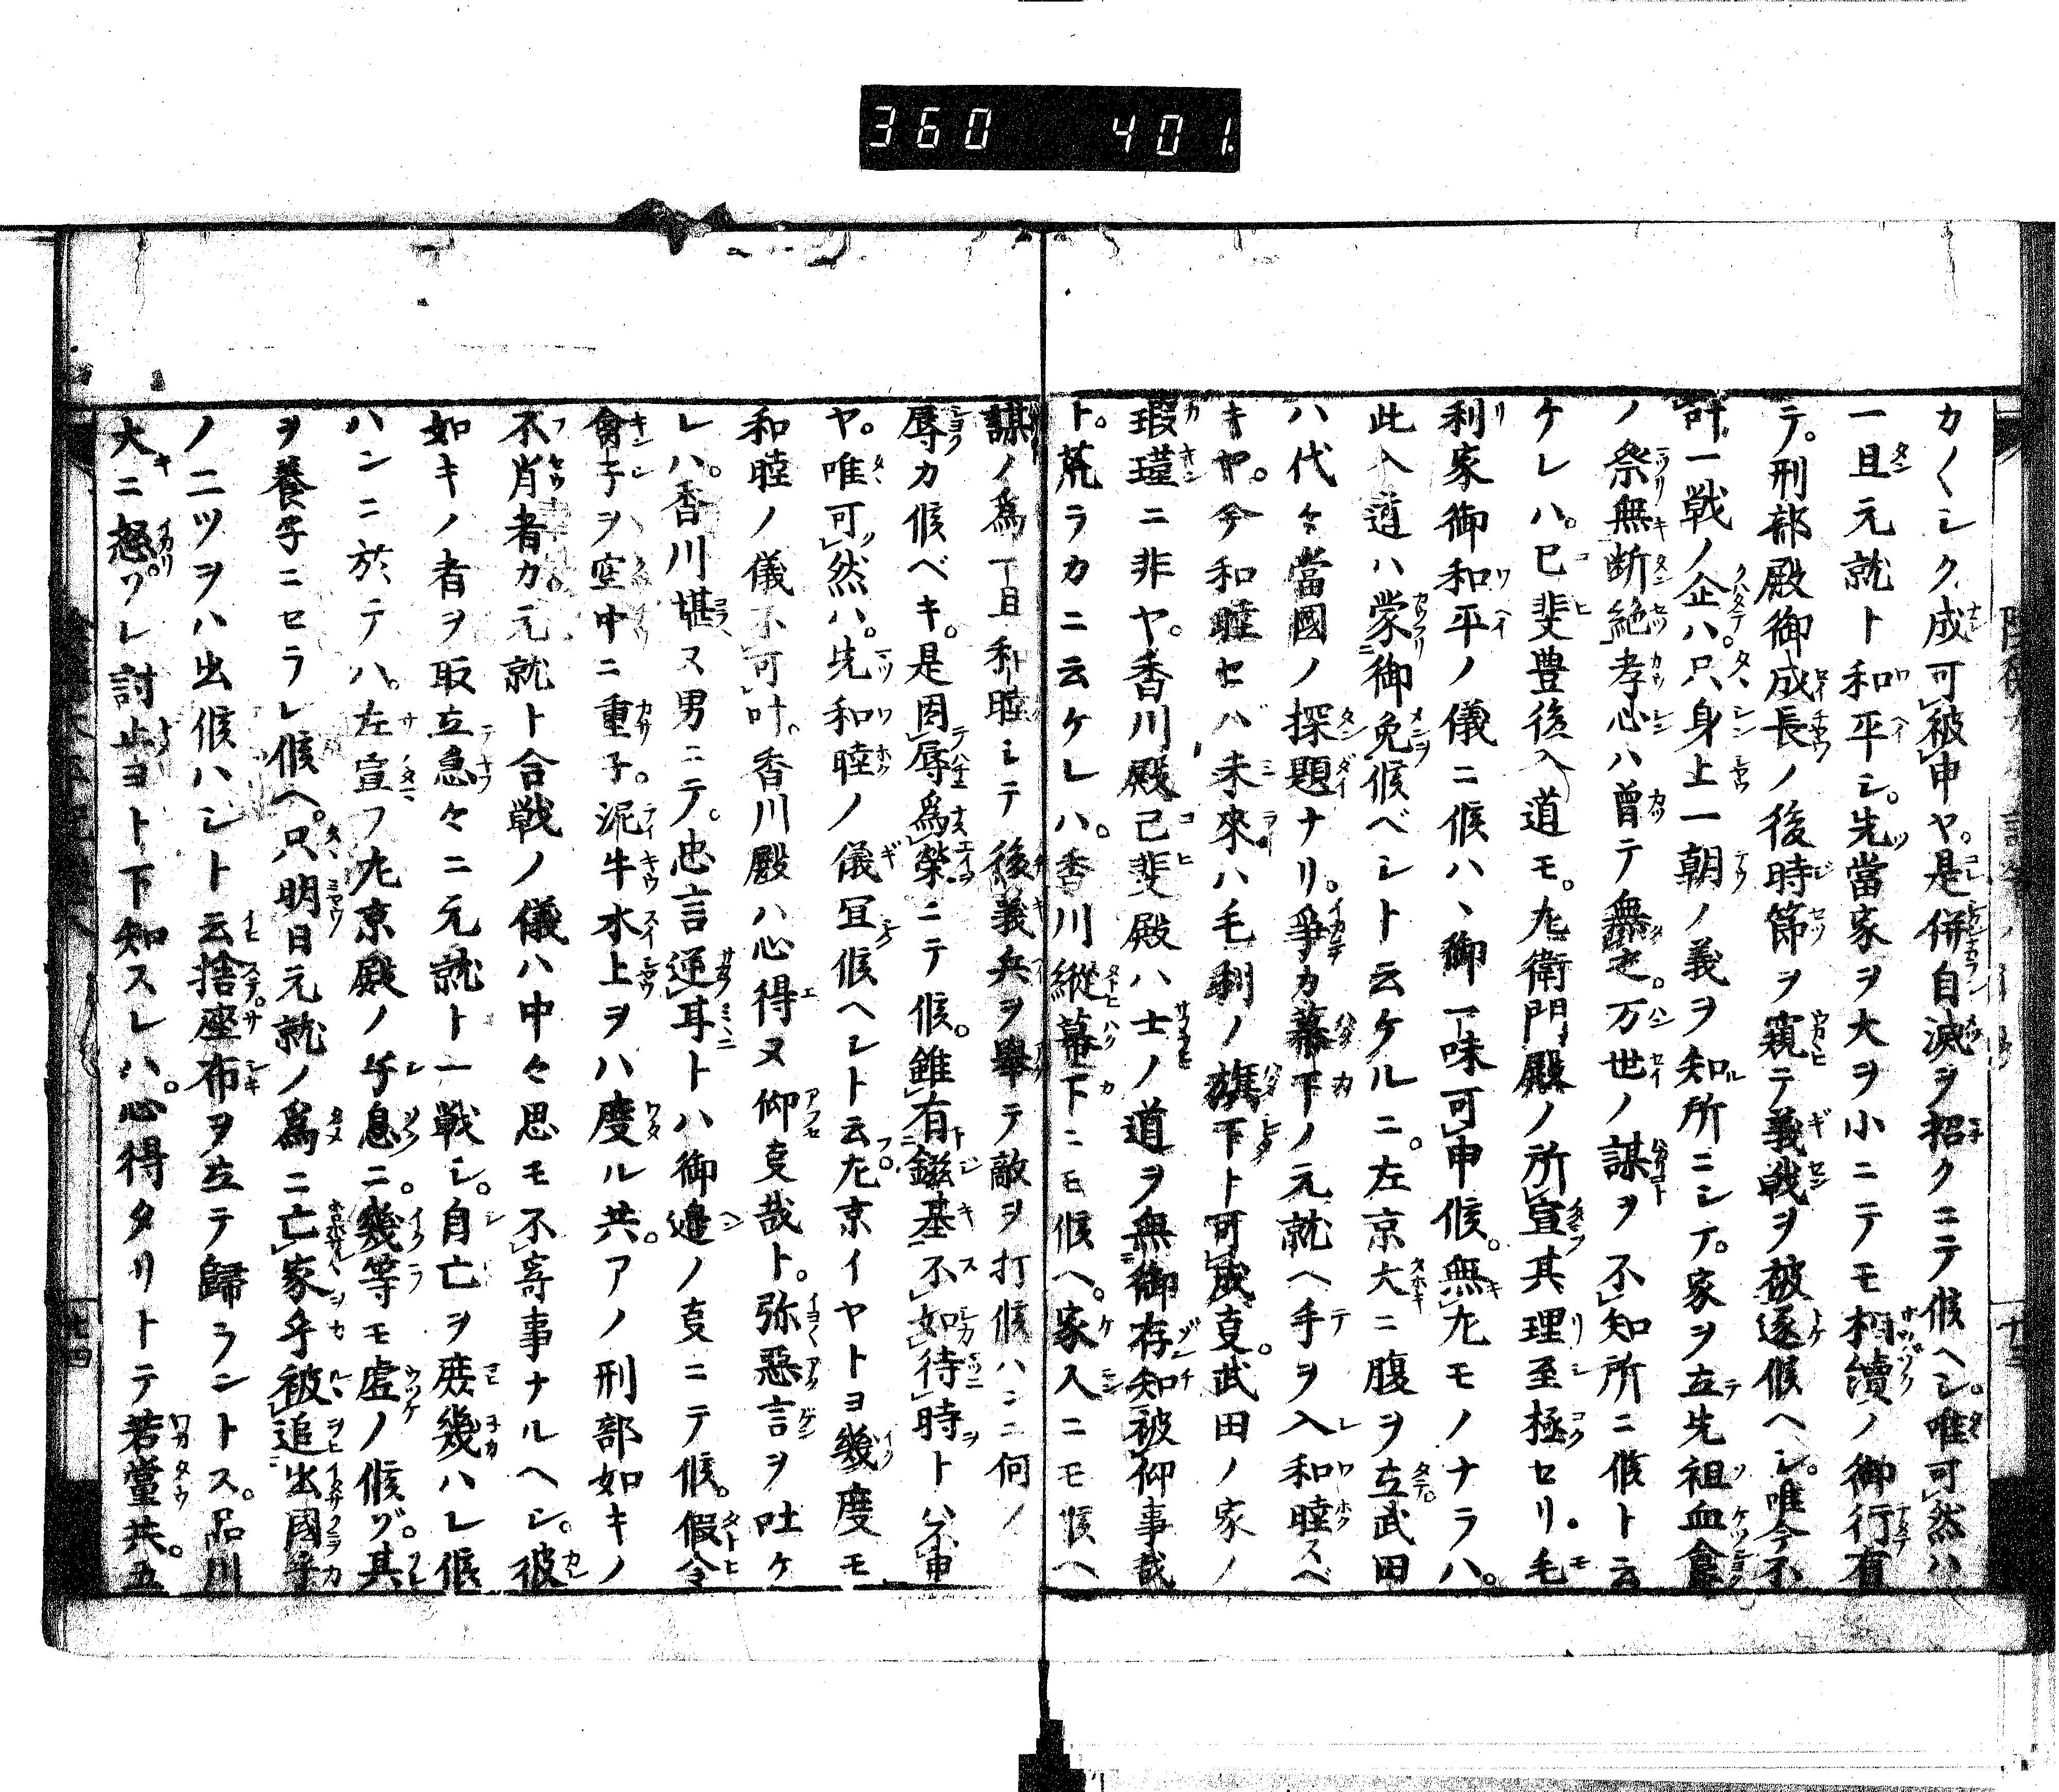 360 401.
カクシク成可被申ヤ。是併自滅ヲ招クニテ候ヘシ。唯可然ハ
一旦元就ト和平シ。先當家ヲ大ヲ小ニテモ相續ノ御行有
テ。刑部殿御成長ノ後時節ヲ窺テ義戦ヲ被遂候ヘシ。唯今不
叶一戦ノ企ハ。只身上一朝ノ義ヲ知所ニシテ。家ヲ立先祖血食
ノ祭無断絶孝心ハ曽テ無之。万世ノ謀ヲ不知所ニ候ト云
ケレハ。己斐豊後入道モ。左衛門殿ノ所宣其理至極セリ。毛
利家御和平ノ儀ニ候ハヽ御一味可申候。無左モノナラハ。
此入道ハ蒙御免候ベシト云ケルニ。左京大ニ腹ヲ立武田
ハ代々當國ノ探題ナリ。爭カ幕下ノ元就ヘ手ヲ入和睦スベ
キヤ。今和睦セバ未來ハ毛利ノ旗下ト可成叓。武田ノ家ノ
瑕瑾ニ非ヤ。香川殿己斐殿ハ士ノ道ヲ無御存知被仰事哉
ト。荒ラカニ云ケレハ。香川縦幕下ニモ候ヘ。家人ニモ候ヘ
謀ノ爲一旦和睦シテ後義兵ヲ擧テ敵ヲ打候ハンニ何ノ
辱カ候ベキ。是因辱爲榮ニテ候。雖有鎡基不如待時ト公不申
ヤ。唯可然ハ。先和睦ノ儀冝候ヘシト云左京イヤトヨ幾度モ
和睦ノ儀不可叶。香川殿ハ心得ヌ仰叓哉ト。弥惡言ヲ吐ケ
レハ。香川堪ヌ男ニテ。忠言逆耳トハ御邉ノ叓ニテ候。假令
禽子ヲ空中ニ重子。泥牛水上ヲハ度ル共。アノ刑部如キノ
不肖者カ。元就ト合戦ノ儀ハ中々思モ不寄事ナルヘシ。彼
如キノ者ヲ取立急々ニ元就ト一戦シ。自亡ヲ庶幾ハレ候
ハンニ於テハ。左宣フ左京殿ノ子息ニ。幾等モ虚ノ候ゾ。其
ヲ養子ニセラレ候ヘ。只明日元就ノ爲ニ亡家乎被追出國乎
ノ二ツヲハ出候ハシト云捨座布ヲ立テ歸ラントス。品川
大ニ怒ツレ討止ヨト下知スレハ。心得タリトテ若黨共。五